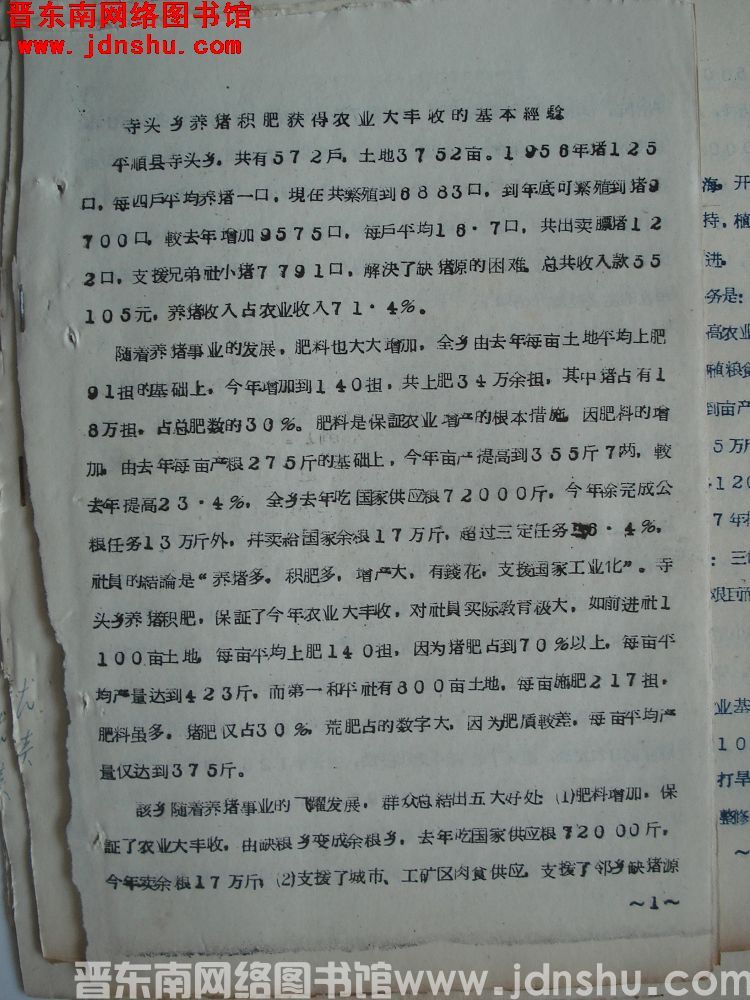 晋东南网络图书馆
www.jdnshu.com
寺头乡养猪积肥获得农业大丰收的基本經驗
平順县寺头乡，共有572戶，土地3752亩。1956年猪125
口，每四戶平均养猪一口，現在共繁殖到6883口，到年底可繁殖到猪9
700口，較去年增加9575口，每戶平均16·7口，共出卖膘猪12
2口，支援兄弟社小猪7791口，解決了缺猪源的困难。总共收入款55
105元，养猪收入占农业收入71·4%。
随着养猪事业的发展，肥料也大大增加，全乡由去年每亩土地平均上肥
91担的基础上，今年增加到140担，共上肥34万余担，其中猪占有1
8万担，占总肥数的30%。肥料是保証农业增产的根本措施，因肥料的增
加，由去年每亩产粮275斤的基础上，今年亩产提高到355斤7两，較
去年提高23·4%，全乡去年吃国家供应粮72000斤，今年除完成公
粮任务13万斤外，并卖給国家余粮17万斤，超过三定任务 6·4%，
社員的結論是“养猪多。积肥多，增产大，有錢花，支援国家工业化”。寺
头乡养猪积肥，保証了今年农业大丰收，对社員实际教育极大，如前进社1
100亩土地，每亩平均上肥140担，因为猪肥占到70%以上，每亩平
均产量达到423斤，而第一和平社有800亩土地，每亩施肥217担，
肥料虽多，猪肥仅占30%，荒肥占的数字大，因为肥质較差，每亩平均产
量仅达到375斤。
該乡随着养猪事业的飞躍发展，群众总結出五大好处：(1)肥料增加，保
証了农业大丰收，由缺粮乡变成余粮乡，去年吃国家供应粮72000斤，
今年卖余粮17万斤；(2)支援了城市、工矿区肉食供应，支援了邻乡缺猪源
～1～
海，开
持，植
进。
务是：
高农业
植粮食
到亩产
5万斤
·120
7年
：三
业基
10
打旱
整修
晋东南网络图书馆www.jdnshu.com